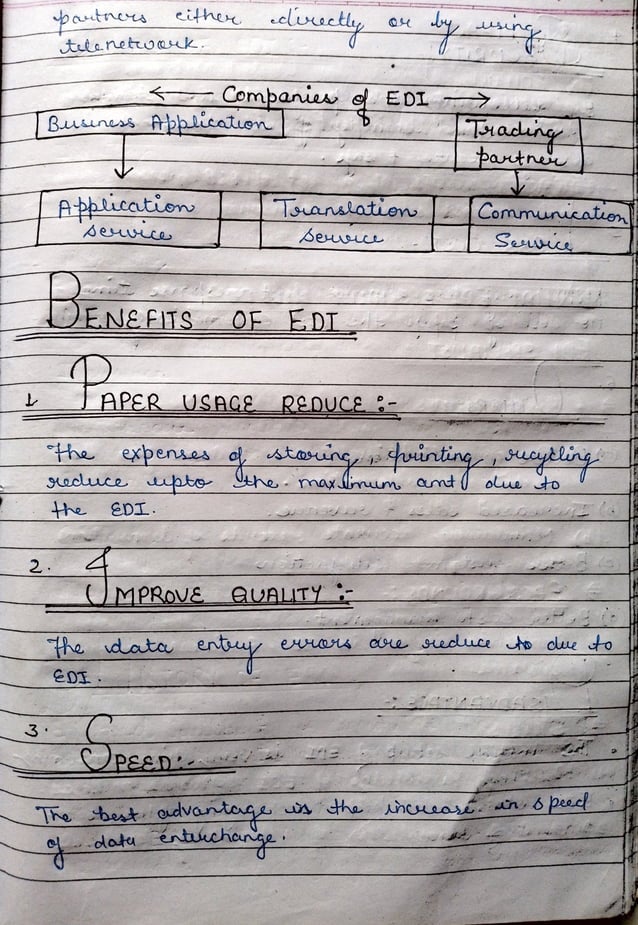 partners either directly or by using
telenetwork.
← Companies of EDI →
Business Application
Trading
partner
Application
service
Translation
service
Communication
Service
BENEFITS OF EDI
1 PAPER USAGE REDUCE :-
The expenses of storing, printing, recycling
reduce upto the maximum amt due to
the EDI.
2. IMPROVE QUALITY :-
The data entry errors are reduce to due to
EDI.
3. SPEED:-
The best advantage is the increase in speed
of data enterchange.